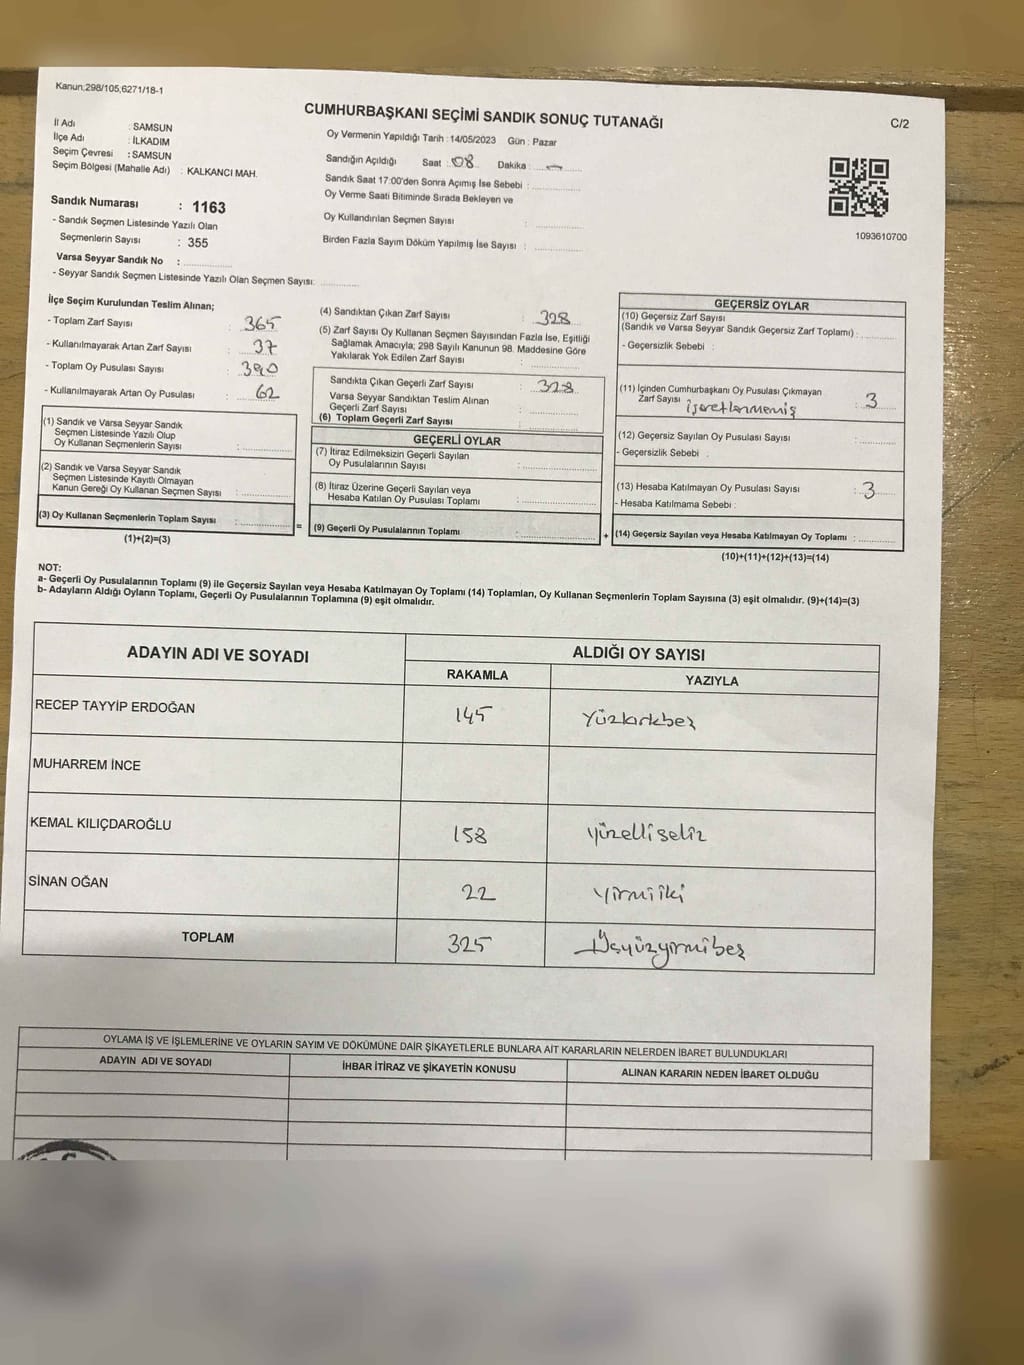 Kanun:298/105,6271/18-1
CUMHURBAŞKANI SEÇİMİ SANDIK SONUÇ TUTANAĞI
C/2
İl Adı : SAMSUN
İlçe Adı : İLKADIM
Seçim Çevresi : SAMSUN
Seçim Bölgesi (Mahalle Adı) : KALKANCI MAH.
Oy Vermenin Yapıldığı Tarih : 14/05/2023 Gün : Pazar
Sandığın Açıldığı Saat : 08 Dakika : —
Sandık Saat 17:00'den Sonra Açımış İse Sebebi :
Oy Verme Saati Bitiminde Sırada Bekleyen ve
Oy Kullandırılan Seçmen Sayısı :
Birden Fazla Sayım Döküm Yapılmış İse Sayısı :
1093610700
Sandık Numarası : 1163
- Sandık Seçmen Listesinde Yazılı Olan
Seçmenlerin Sayısı : 355
Varsa Seyyar Sandık No :
- Seyyar Sandık Seçmen Listesinde Yazılı Olan Seçmen Sayısı:
İlçe Seçim Kurulundan Teslim Alınan;
- Toplam Zarf Sayısı : 365
- Kullanılmayarak Artan Zarf Sayısı : 37
- Toplam Oy Pusulası Sayısı : 390
- Kullanılmayarak Artan Oy Pusulası : 62
(1) Sandık ve Varsa Seyyar Sandık
Seçmen Listesinde Yazılı Olup
Oy Kullanan Seçmenlerin Sayısı :
(2) Sandık ve Varsa Seyyar Sandık
Seçmen Listesinde Kayıtlı Olmayan
Kanun Gereği Oy Kullanan Seçmen Sayısı :
(3) Oy Kullanan Seçmenlerin Toplam Sayısı :
(1)+(2)=(3)
=
(4) Sandıktan Çıkan Zarf Sayısı : 328
(5) Zarf Sayısı Oy Kullanan Seçmen Sayısından Fazla İse, Eşitliği
Sağlamak Amacıyla; 298 Sayılı Kanunun 98. Maddesine Göre
Yakılarak Yok Edilen Zarf Sayısı :
Sandıkta Çıkan Geçerli Zarf Sayısı : 328
Varsa Seyyar Sandıktan Teslim Alınan
Geçerli Zarf Sayısı :
(6) Toplam Geçerli Zarf Sayısı :
GEÇERLİ OYLAR
(7) İtiraz Edilmeksizin Geçerli Sayılan
Oy Pusulalarının Sayısı :
(8) İtiraz Üzerine Geçerli Sayılan veya
Hesaba Katılan Oy Pusulası Toplamı :
(9) Geçerli Oy Pusulalarının Toplamı :
+
GEÇERSİZ OYLAR
(10) Geçersiz Zarf Sayısı
(Sandık ve Varsa Seyyar Sandık Geçersiz Zarf Toplamı) :
- Geçersizlik Sebebi :
(11) İçinden Cumhurbaşkanı Oy Pusulası Çıkmayan
Zarf Sayısı işaretlenmemiş : 3
(12) Geçersiz Sayılan Oy Pusulası Sayısı :
- Geçersizlik Sebebi :
(13) Hesaba Katılmayan Oy Pusulası Sayısı : 3
- Hesaba Katılmama Sebebi :
(14) Geçersiz Sayılan veya Hesaba Katılmayan Oy Toplamı :
(10)+(11)+(12)+(13)=(14)
NOT:
a- Geçerli Oy Pusulalarının Toplamı (9) ile Geçersiz Sayılan veya Hesaba Katılmayan Oy Toplamı (14) Toplamları, Oy Kullanan Seçmenlerin Toplam Sayısına (3) eşit olmalıdır. (9)+(14)=(3)
b- Adayların Aldığı Oyların Toplamı, Geçerli Oy Pusulalarının Toplamına (9) eşit olmalıdır.
ADAYIN ADI VE SOYADI
ALDIĞI OY SAYISI
RAKAMLA YAZIYLA
RECEP TAYYİP ERDOĞAN 145 Yüzkırkbeş
MUHARREM İNCE
KEMAL KILIÇDAROĞLU 158 yüzellisekiz
SİNAN OĞAN 22 yirmiiki
TOPLAM 325 Üçyüzyirmibeş
OYLAMA İŞ VE İŞLEMLERİNE VE OYLARIN SAYIM VE DÖKÜMÜNE DAİR ŞİKAYETLERLE BUNLARA AİT KARARLARIN NELERDEN İBARET BULUNDUKLARI
ADAYIN ADI VE SOYADI İHBAR İTİRAZ VE ŞİKAYETİN KONUSU ALINAN KARARIN NEDEN İBARET OLDUĞU